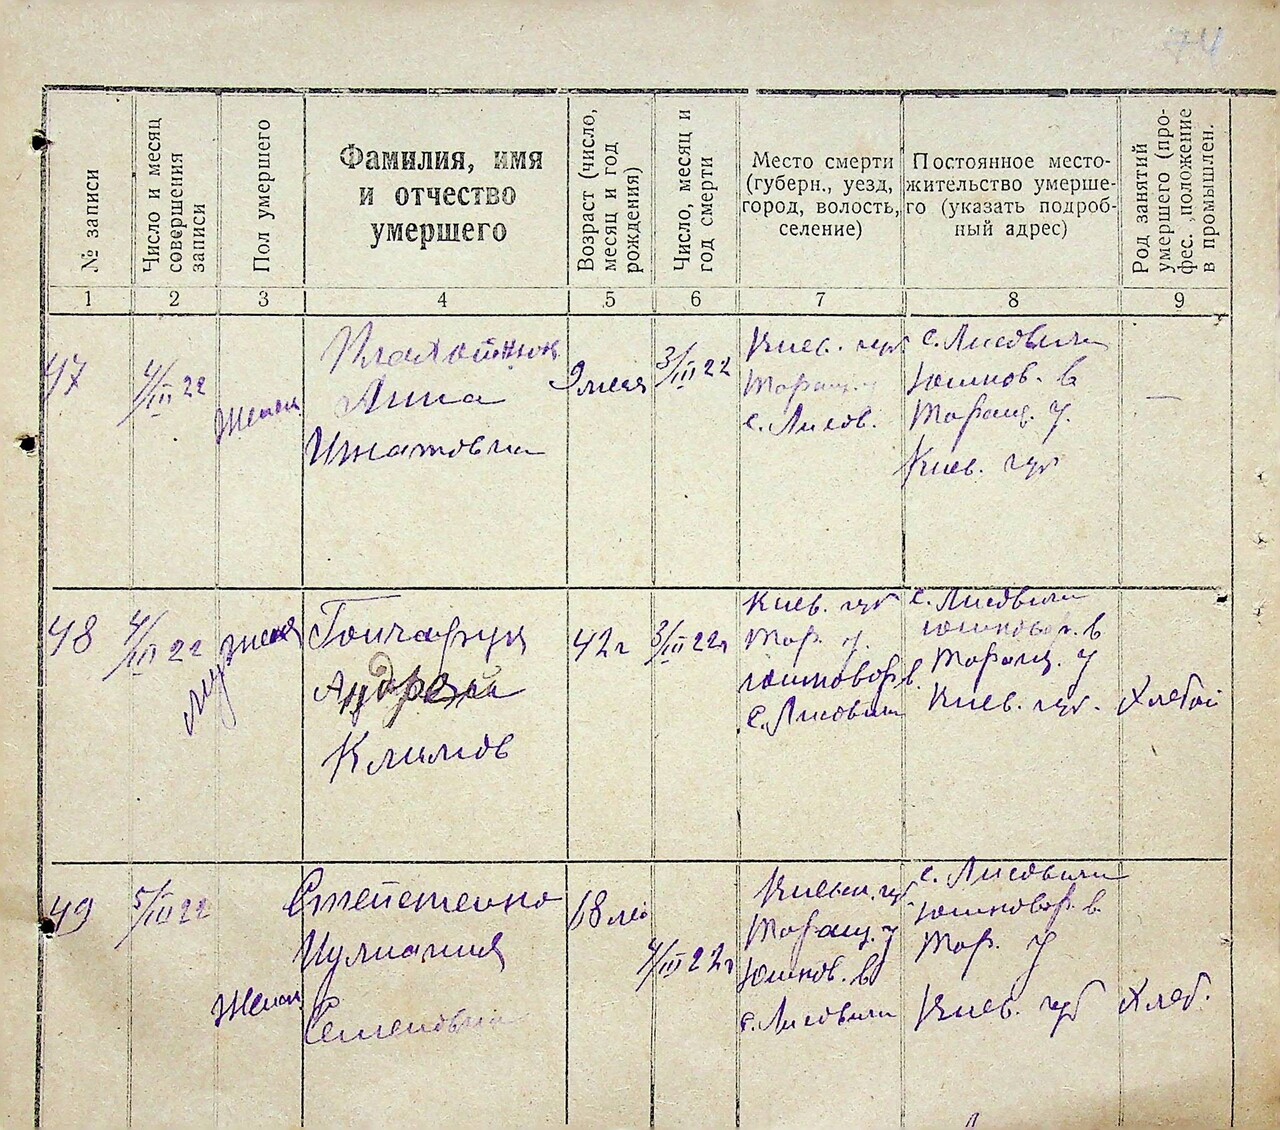 74
№ записи
Число и месяц
совершения
записи
Пол умершего
Фамилия, имя
и отчество
умершего
Возраст (число,
месяц и год
рождения)
Число, месяц и
год смерти
Место смерти
(губерн., уезд,
город, волость,
селение)
Постоянное место-
жительство умерше-
го (указать подроб-
ный адрес)
Род занятий
умершего (про-
фес., положение
в промышлен.
1 2 3 4 5 6 7 8 9
47
4/III 22
Женск
Анна
Игнатовна
9 месяц
3/III 22
Киев. губ
Таращ. у
с. Лисов.
с. Лисовичи
Юшков. в
Таращ. у.
Киев. губ
—
48
4/III 22
Женск
муж
Гончарук
Андрей
Климов
42 г
3/III 22 г
Киев. губ
Тар. у.
Юшковор. в.
с. Лисовичи
с. Лисовичи
Юшковор. в
Таращ. у
Киев. губ.
Хлебоп
49
5/III 22
Женск
Степаненко
Иулиания
Семеновна
68 ле
4/III 22 г
Киевск. губ.
Таращ. у
Юшков. в
с. Лисовичи
с. Лисовичи
Юшковор. в
Тар. у
Киев. губ
Хлеб.